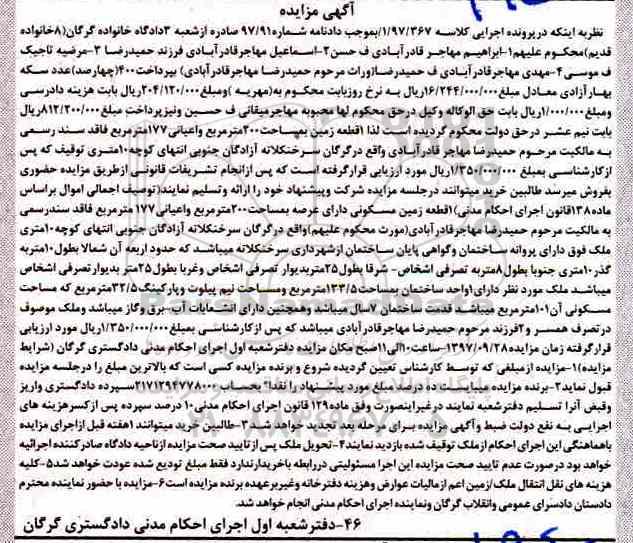 آگهی مزایده
نظربه اینکه درپرونده اجرایی کلاسه ۱/۹۷/۳۶۷/بموجب دادنامه شماره۹۷/۹۱ صادره ازشعبه ۳دادگاه خانواده گرگان(۸خانواده
قدیم)محکوم علیهم۱-ابراهیم مهاجر قادرآبادی ف حسن۲-اسماعیل مهاجرقادرآبادی فرزند حمیدرضا ۳-مرضیه تاجیک
ف موسی۴-مهدی مهاجرقادرآبادی ف حمیدرضا(وراث مرحوم حمیدرضا مهاجرقادرآبادی) بپرداخت۴۰۰(چهارصد)عدد سکه
بهارآزادی معادل مبلغ۱۶/۲۴۴/۰۰۰/۰۰۰ریال به نرخ روزبابت محکوم به(مهریه )ومبلغ۲۰۴/۱۲۰/۰۰۰ریال بابت هزینه دادرسی
ومبلغ۱/۰۰۰/۰۰۰ریال بابت حق الوکاله وکیل درحق محکوم لها محبوبه مهاجرمیقانی ف حسین ونیزپرداخت مبلغ۸۱۲/۲۰۰/۰۰۰ریال
بابت نیم عشر درحق دولت محکوم گردیده است لذا ۱قطعه زمین بمساحت۲۰۰مترمربع واعیانی۱۷۷مترمربع فاقد سند رسمی
به مالکیت مرحوم حمیدرضا مهاجر قادرآبادی واقع درگرگان سرخنکلاته آزادگان جنوبی انتهای کوچه۱۰متری توقیف که پس
ازکارشناسی بمبلغ ۱/۳۵۰/۰۰۰/۰۰۰ریال مورد ارزیابی قرارگرفته است که پس ازانجام تشریفات قانونی ازطریق مزایده حضوری
بفروش میرسد طالبین خرید میتوانند درجلسه مزایده شرکت وپیشنهاد خود را ارائه وتسلیم نمایند(توصیف اجمالی اموال براساس
ماده۱۳۸قانون اجرای احکام مدنی)۱قطعه زمین مسکونی دارای عرصه بمساحت۲۰۰مترمربع واعیانی۱۷۷مترمربع فاقد سندرسمی
به مالکیت مرحوم حمیدرضا مهاجرقادرآبادی(مورث محکوم علیهم)واقع درگرگان سرخنکلاته آزادگان جنوبی انتهای کوچه۱۰متری
ملک فوق دارای پروانه ساختمان وگواهی پایان ساختمان ازشهرداری سرخنکلاته میباشد که حدود اربعه آن شمالا بطول۱۰متربه
گذر۱۰متری جنوبا بطول۸متربه تصرفی اشخاص- شرقا بطول۲۵متربدیوار تصرفی اشخاص وغربا بطول۲۵متر بدیوارتصرفی اشخاص
میباشد ملک مورد نظر دارای۱واحد ساختمان بمساحت۱۳۳/۵مترمربع ومساحت نیم پیلوت وپارکینگ۳۲/۵مترمربع که مساحت
مسکونی آن۱۰۱مترمربع میباشد قدمت ساختمان ۷سال میباشد وهمچنین دارای انشعابات آب- برق وگاز میباشد وملک موصوف
درتصرف همسر و۲فرزند مرحوم حمیدرضا مهاجرقادرآبادی میباشد که پس ازکارشناسی بمبلغ۱/۳۵۰/۰۰۰/۰۰۰ریال مورد ارزیابی
قرارگرفته زمان مزایده۱۳۹۷/۰۹/۲۸-ساعت۱۰الی۱۱صبح مکان مزایده دفترشعبه اول اجرای احکام مدنی دادگستری گرگان (شرایط
مزایده)۱-مزایده ازمبلغی که توسط کارشناس تعیین گردیده شروع و برنده مزایده کسی است که بالاترین مبلغ را درجلسه مزایده
قبول نماید۲-برنده مزایده میبایست ده درصد مبلغ مورد پیشنهاد را نقدا" بحساب ۲۱۷۱۲۹۴۷۷۸۰۰۰سپرده دادگستری واریز
وقبض آنرا تسلیم دفترشعبه نمایند درغیراینصورت وفق ماده۱۲۹قانون اجرای احکام مدنی۱۰ درصد سپرده پس ازکسرهزینه های
اجرایی به نفع دولت ضبط وآگهی مزایده برای مرحله بعد تجدید خواهد شد۳-طالبین خرید میتوانند ۱هفته قبل ازاجرای مزایده
باهماهنگی این اجرای احکام ازملک توقیف شده بازدید نمایند۴-تحویل ملک پس ازتایید صحت مزایده ازناحیه دادگاه صادرکننده اجرائیه
خواهد بود درصورت عدم تایید صحت مزایده این اجرا مسئولیتی دررابطه باخریدارندارد فقط مبلغ تودیع شده عودت خواهد شد۵-کلیه
هزینه های نقل انتقال ملک/زمین اعم ازمالیات عوارض وهزینه دفترخانه وغیربرعهده برنده مزایده است۶-مزایده با حضور نماینده محترم
دادستان دادسرای عمومی وانقلاب گرگان ونماینده اجرای احکام مدنی انجام خواهد شد.
۴۶-دفترشعبه اول اجرای احکام مدنی دادگستری گرگان